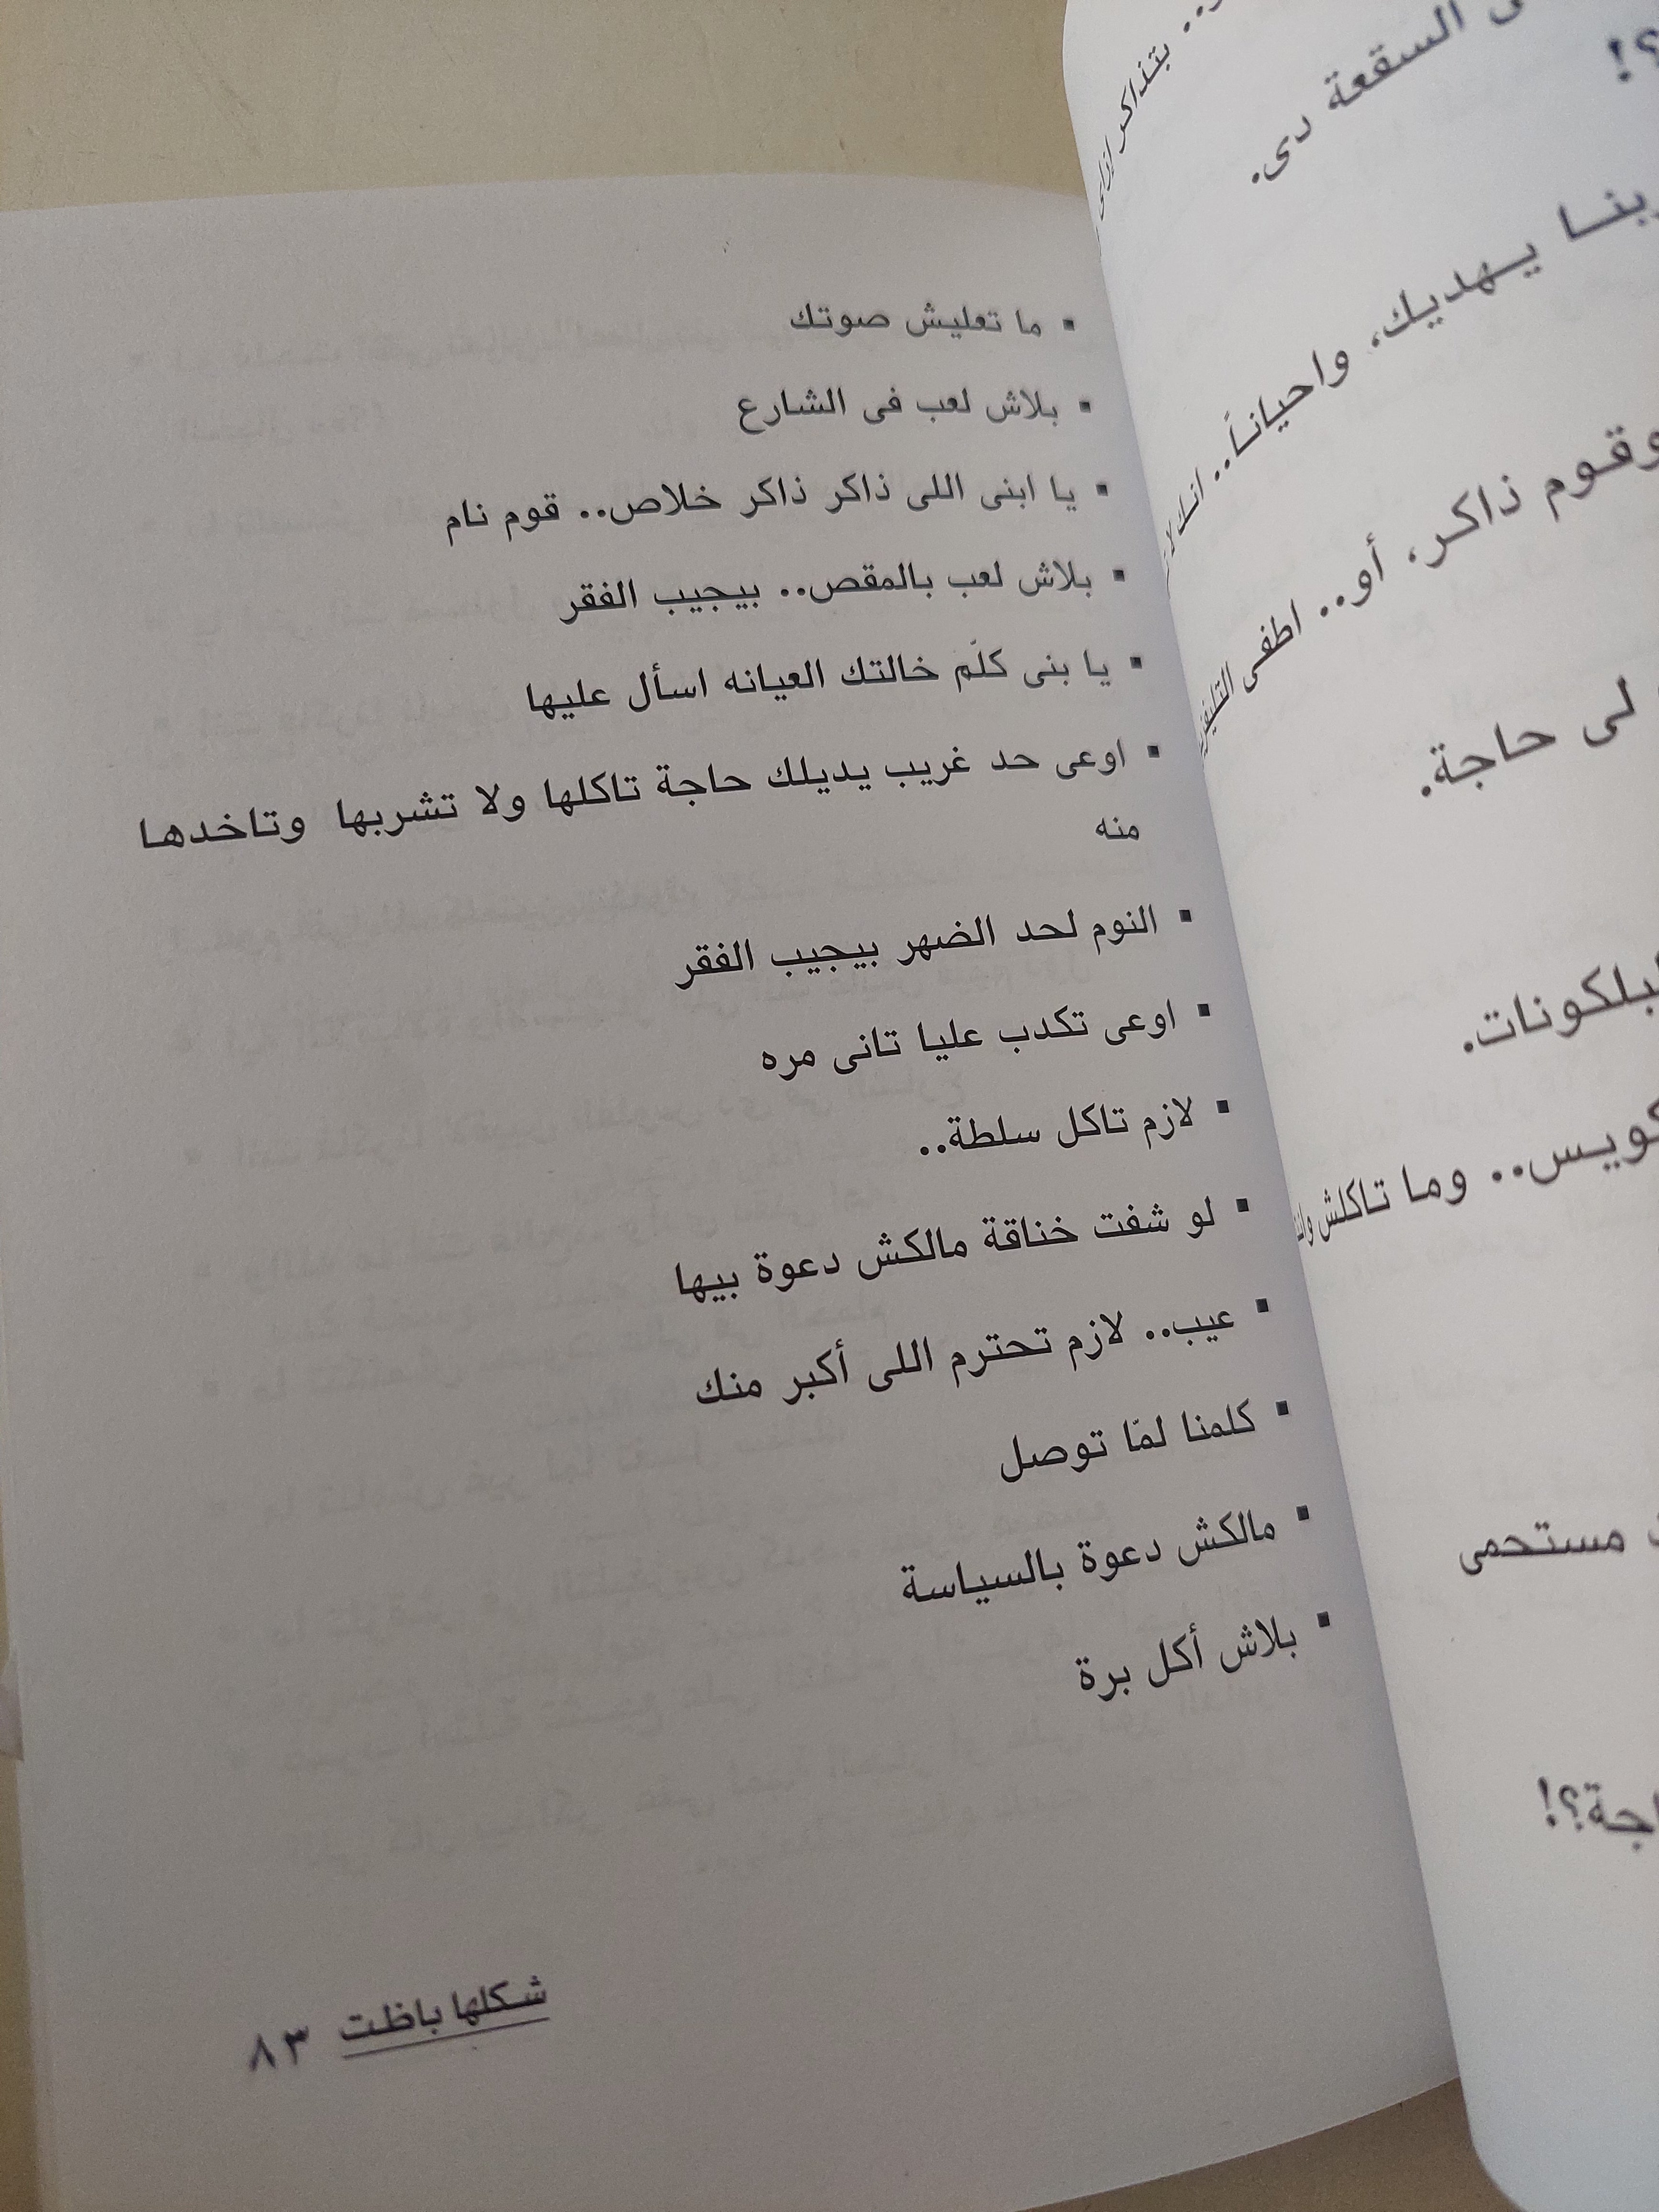 ▪ ما تعليش صوتك
▪ بلاش لعب فى الشارع
▪ يا ابنى اللى ذاكر ذاكر خلاص.. قوم نام
▪ بلاش لعب بالمقص.. بيجيب الفقر
▪ يا بنى كلّم خالتك العيانه اسأل عليها
▪ اوعى حد غريب يديلك حاجة تاكلها ولا تشربها وتاخدها
منه
▪ النوم لحد الضهر بيجيب الفقر
▪ اوعى تكدب عليا تانى مره
▪ لازم تاكل سلطة..
▪ لو شفت خناقة مالكش دعوة بيها
▪ عيب.. لازم تحترم اللى أكبر منك
▪ كلمنا لمّا توصل
▪ مالكش دعوة بالسياسة
▪ بلاش أكل برة
شكلها باظت ٨٣
بتذاكر ازاى
السقعة دى.
؟!
يهديك، واحياناً.. انك لا
وقوم ذاكر، أو.. اطفى
لى حاجة.
كويس.. وما تاكلش
مستحمى